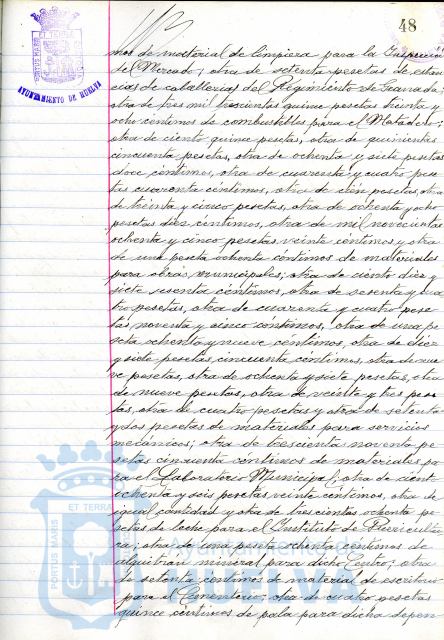 48
PORTUS MARIS
AYUNTAMIENTO DE HUELVA
mos de material de limpieza para la Inspección
del Mercado; otra de setenta pesetas de estan
cias de caballerias del Regimiento de Granada;
otra de tres mil trescientas quince pesetas treinta y
ocho céntimos de combustibles para el Matadero;
otra de ciento quince pesetas, otra de quinientas
cincuenta pesetas, otra de ochenta y siete pesetas
doce céntimos, otra de cuarenta y cuatro pese
tas cuarenta céntimos, otra de cien pesetas, otra
de treinta y cinco pesetas, otra de ochenta y ocho
pesetas diez céntimos, otra de mil novecientas
ochenta y cinco pesetas veinte céntimos y otra
de una peseta ochenta céntimos de materiales
para obras municipales; otra de ciento diez y
siete sesenta céntimos, otra de sesenta y cua
tro pesetas, otra de cuarenta y cuatro pese
tas noventa y cinco céntimos, otra de una pe
seta ochenta y nueve céntimos, otra de diez
y siete pesetas cincuenta céntimos, otra de nue
ve pesetas, otra de ochenta y siete pesetas, otra
de nueve pesetas, otra de veinte y tres pese
tas, otra de cuatro pesetas y otra de setenta
y dos pesetas de materiales para servicios
mecánicos; otra de trescientas noventa pe
setas cincuenta céntimos de materiales pa
ra el Laboratorio Municipal; otra de ciento
ochenta y seis pesetas veinte céntimos, otra de
igual cantidad y otra de trescientas ochenta pe
setas de leche para el Instituto de Puericultu
ra; otra de una peseta ochenta céntimos de
alquitrán mineral para dicho Centro; otra
de setenta céntimos de material de escritorio
para el Cementerio; otra de cuatro pesetas
quince céntimos de pala para dicha depen
PORTUS MARIS ET TERRAE
Ayuntamiento de